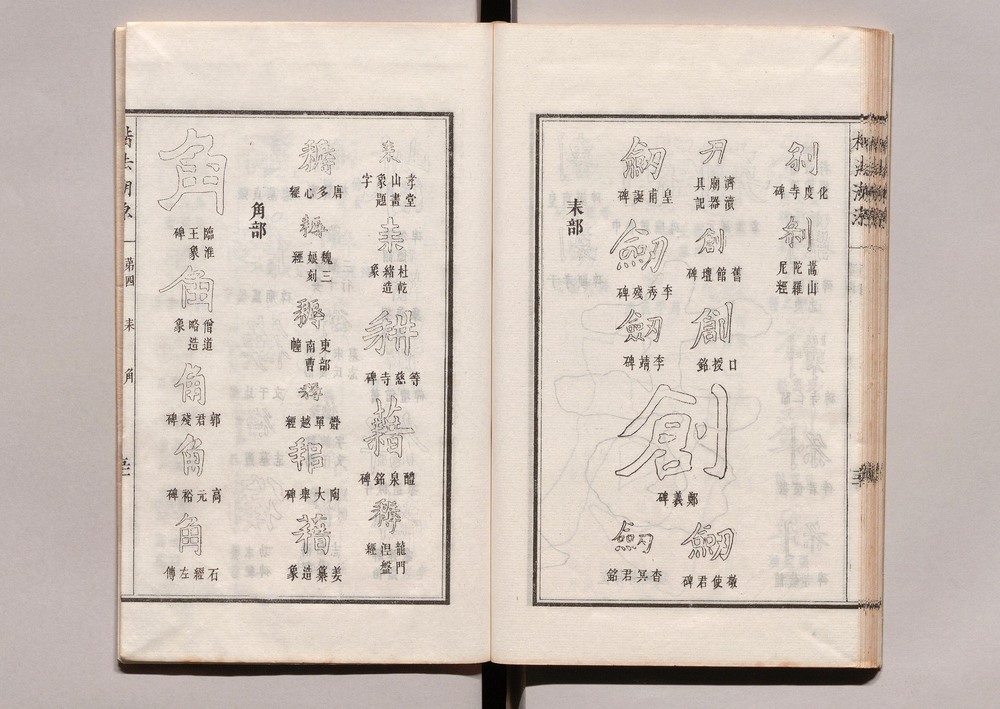 化度寺碑
嵩山
陀羅
尼經
刃
濟瀆
廟器
具記
創
舊館壇碑
創
口授銘
創
鄭羲碑
劒
敬使君碑
劒
皇甫誕碑
劒
李秀殘碑
劒
李靖碑
劒
杳冥君銘
耒部
耒
孝堂
山畫
象題
字
耒
杜乾
緒造
象
耕
等慈寺碑
藉
醴泉銘碑
耨
龍門
涅盤
經
耨
唐多心經
耨
魏三
娘刻
經
耨
吏部
南曹
幢
鬱單越經
陶大舉碑
藉
姜纂造象
角部
角
臨淮
王象
碑
角
僧道
略造
象
角
郭君殘碑
角
高元裕碑
角
石經左傳
楷法溯源
第四
耒
角